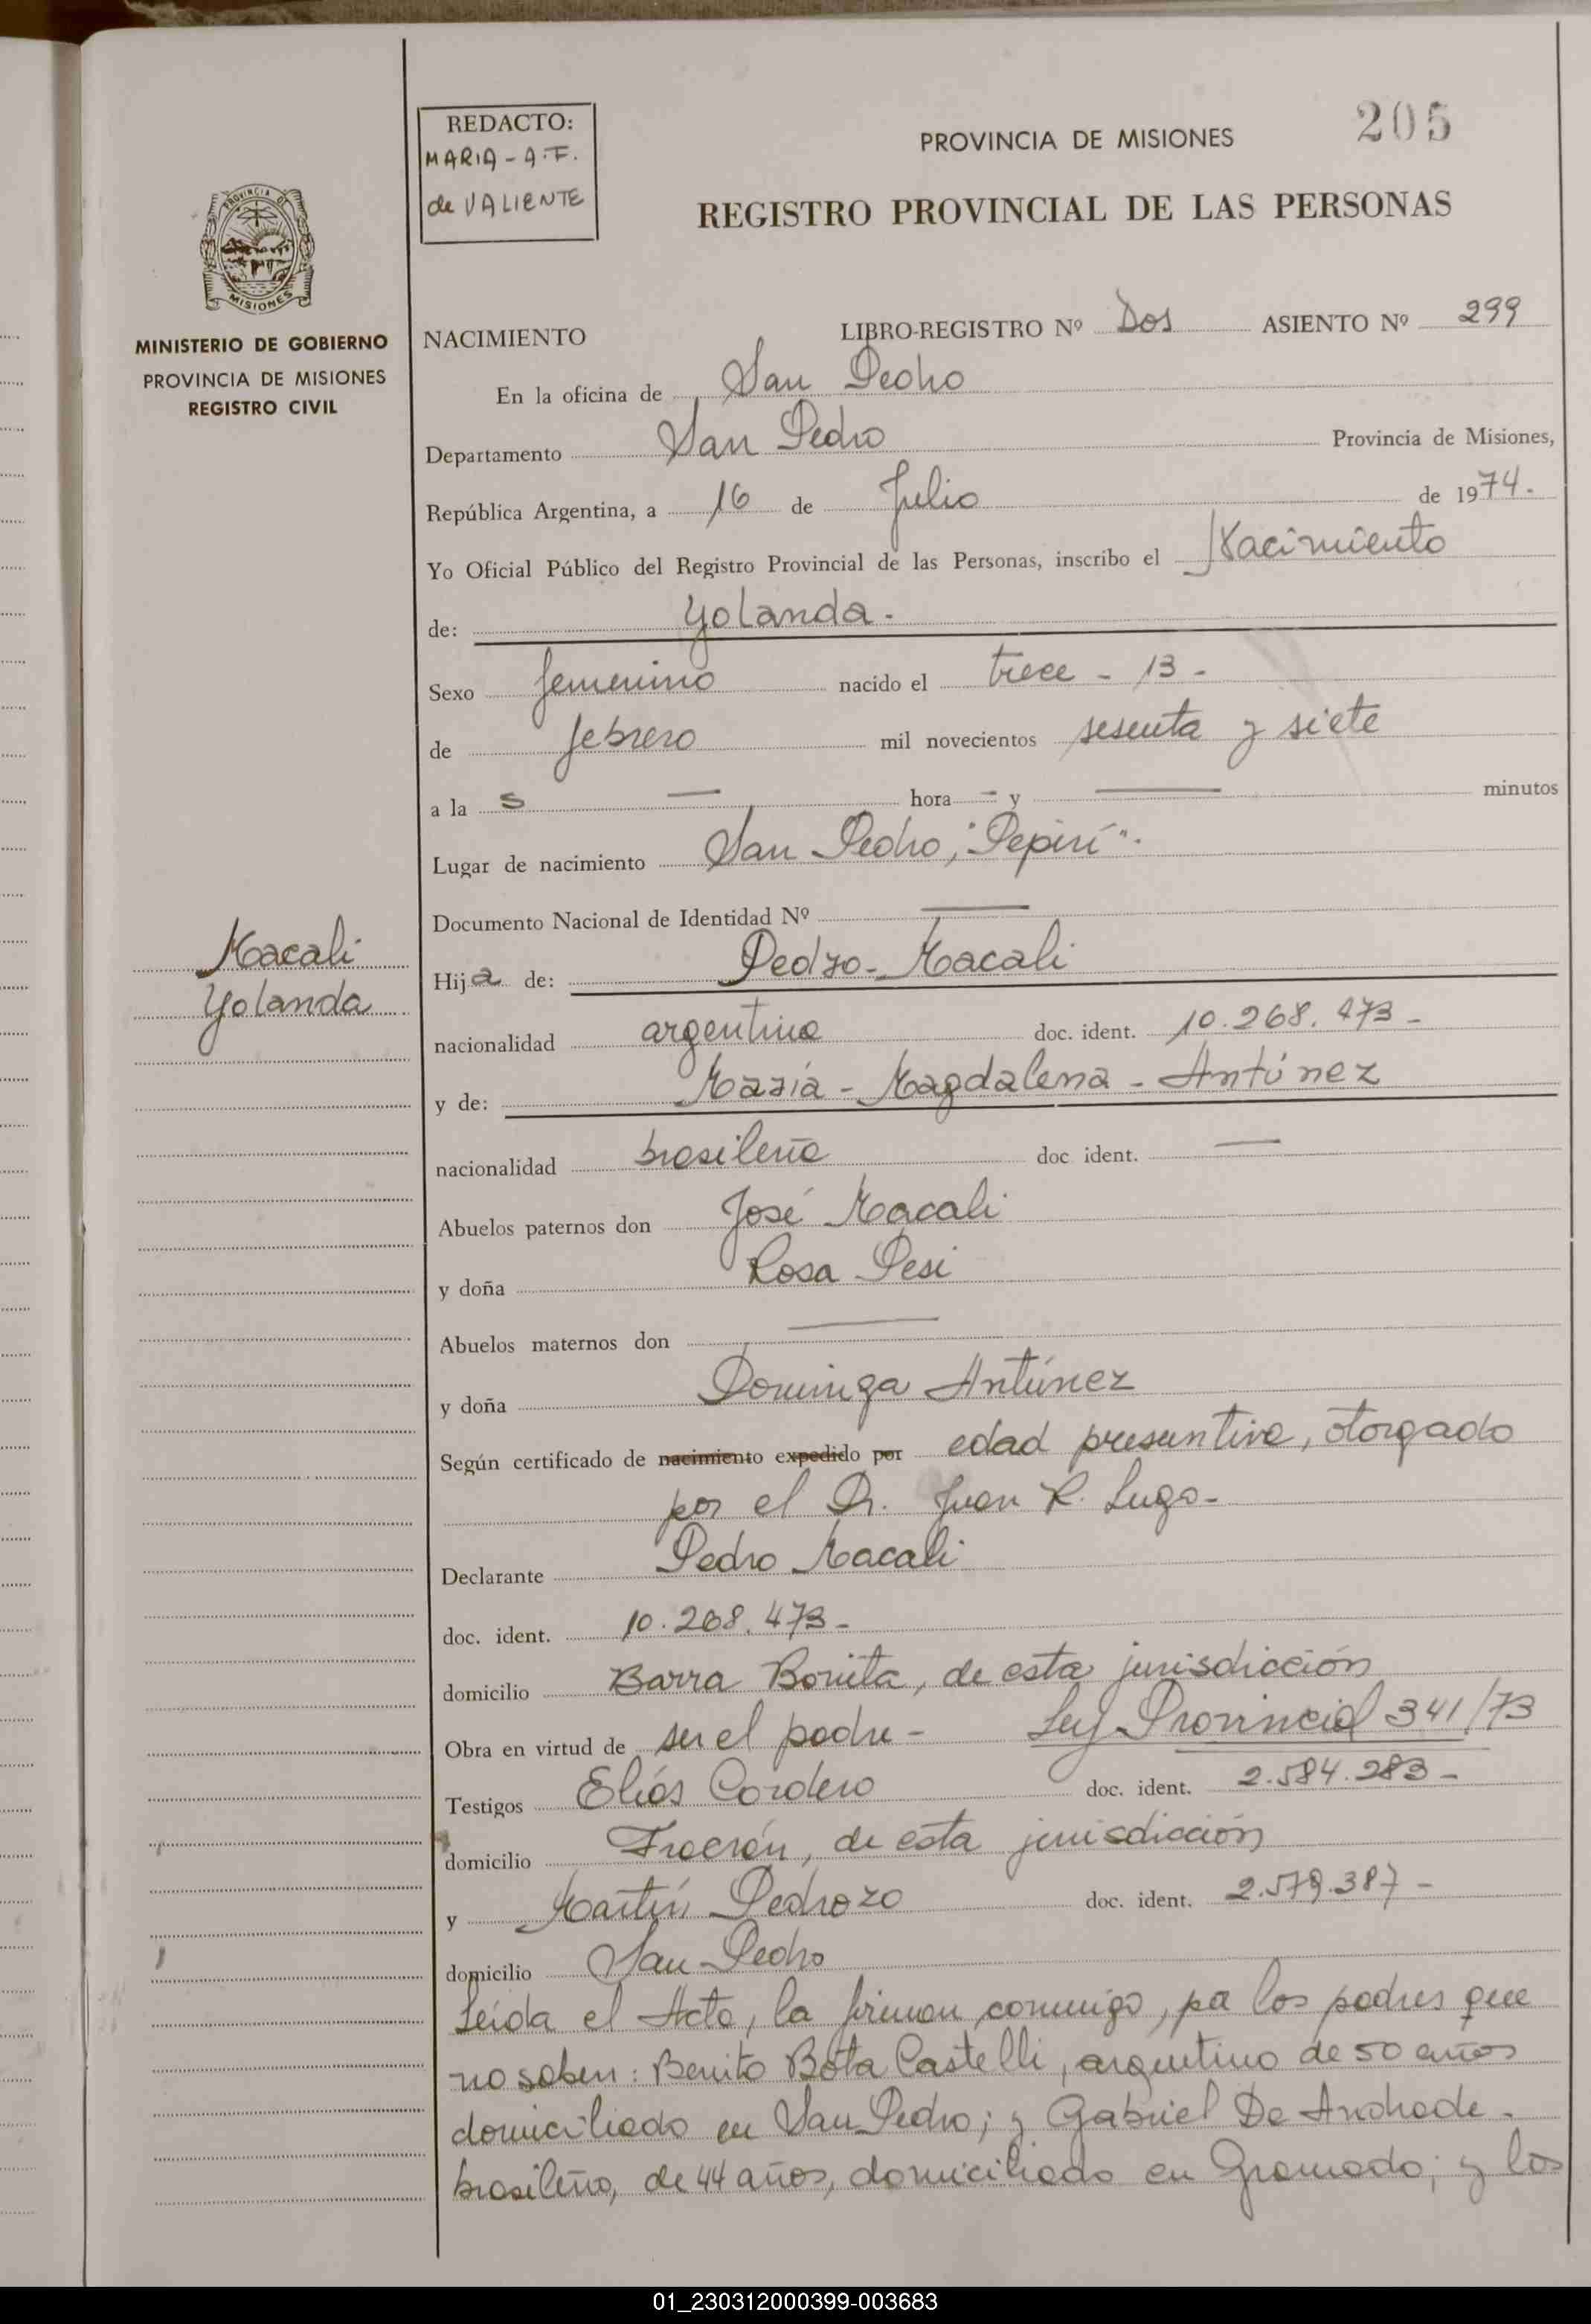 205
REDACTO:
MARIA - A.F.
de VALIENTE
PROVINCIA DE MISIONES
REGISTRO PROVINCIAL DE LAS PERSONAS
PROVINCIA DE
MISIONES
MINISTERIO DE GOBIERNO
PROVINCIA DE MISIONES
REGISTRO CIVIL
NACIMIENTO LIBRO-REGISTRO Nº Dos ASIENTO Nº 299
En la oficina de San Pedro
Departamento San Pedro Provincia de Misiones,
República Argentina, a 16 de Julio de 1974.-
Yo Oficial Público del Registro Provincial de las Personas, inscribo el Nacimiento
de: Yolanda.-
Sexo femenino nacido el trece - 13 -
de febrero mil novecientos sesenta y siete
a la s — hora - y — minutos
Lugar de nacimiento San Pedro, "Pepirí".
Documento Nacional de Identidad Nº —
Macali
Yolanda
Hija de: Pedro - Macali
nacionalidad argentina doc. ident. 10.268.473 -
y de: María - Magdalena - Antúnez
nacionalidad brasileña doc ident. —
Abuelos paternos don José Macali
y doña Rosa Pesi
Abuelos maternos don —
y doña Dominga Antúnez
Según certificado de nacimiento expedido por edad presuntiva, otorgado
por el Dr. Juan R. Lugo-
Declarante Pedro Macali
doc. ident. 10.268.473 -
domicilio Barra Bonita, de esta jurisdicción
Obra en virtud de ser el padre - Ley Provincial 341/73
Testigos Eliós Cordero doc. ident. 2.584.283 -
domicilio Fracrán, de esta jurisdicción
y Martín Pedrozo doc. ident. 2.579.387 -
domicilio San Pedro
Leída el Acta, la firman conmigo, pa los padres que
no saben: Benito Bota Castelli, argentino de 50 años
domiciliado en San Pedro; y Gabriel De Andrade -
brasileño, de 44 años, domiciliado en Gramado; y los
01_230312000399-003683